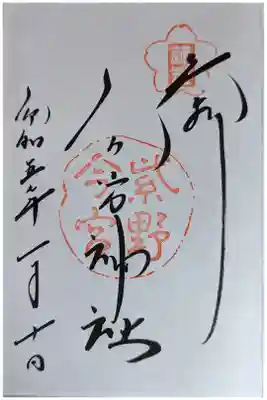 奉拝
今宮神社
紫野
今宮
令和五年一月十日